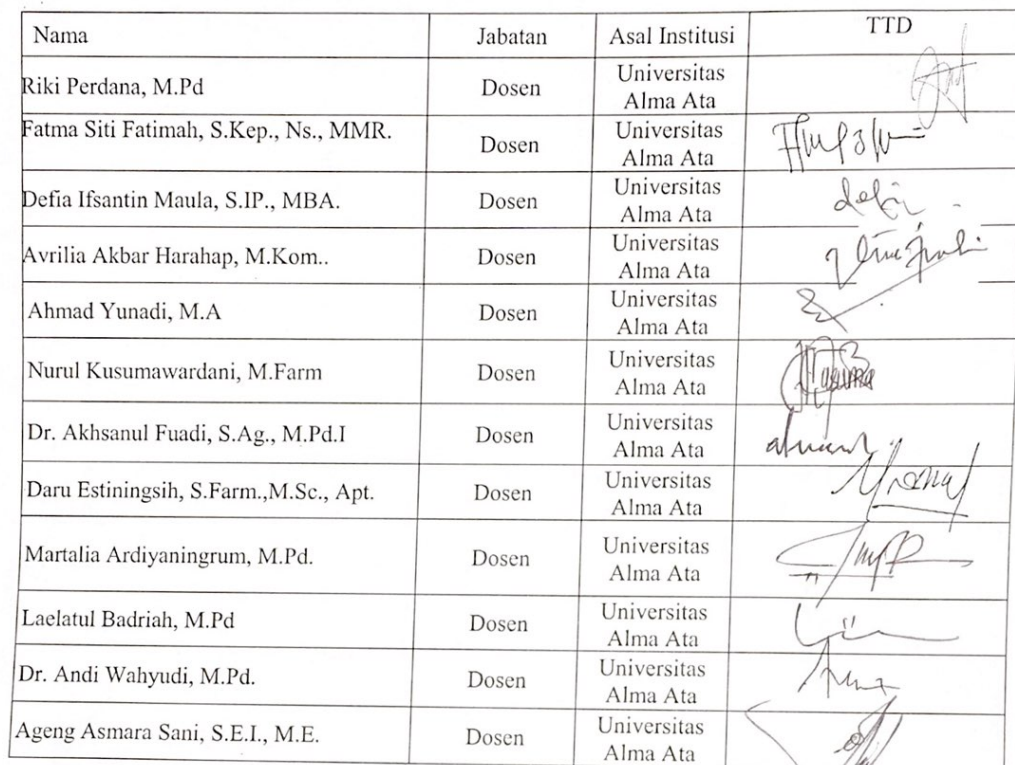 Nama Jabatan Asal Institusi TTD
Riki Perdana, M.Pd Dosen Universitas
Alma Ata
Fatma Siti Fatimah, S.Kep., Ns., MMR. Dosen Universitas
Alma Ata
Defia Ifsantin Maula, S.IP., MBA. Dosen Universitas
Alma Ata
Avrilia Akbar Harahap, M.Kom.. Dosen Universitas
Alma Ata
Ahmad Yunadi, M.A Dosen Universitas
Alma Ata
Nurul Kusumawardani, M.Farm Dosen Universitas
Alma Ata
Dr. Akhsanul Fuadi, S.Ag., M.Pd.I Dosen Universitas
Alma Ata
Daru Estiningsih, S.Farm.,M.Sc., Apt. Dosen Universitas
Alma Ata
Martalia Ardiyaningrum, M.Pd. Dosen Universitas
Alma Ata
Laelatul Badriah, M.Pd Dosen Universitas
Alma Ata
Dr. Andi Wahyudi, M.Pd. Dosen Universitas
Alma Ata
Ageng Asmara Sani, S.E.I., M.E. Dosen Universitas
Alma Ata